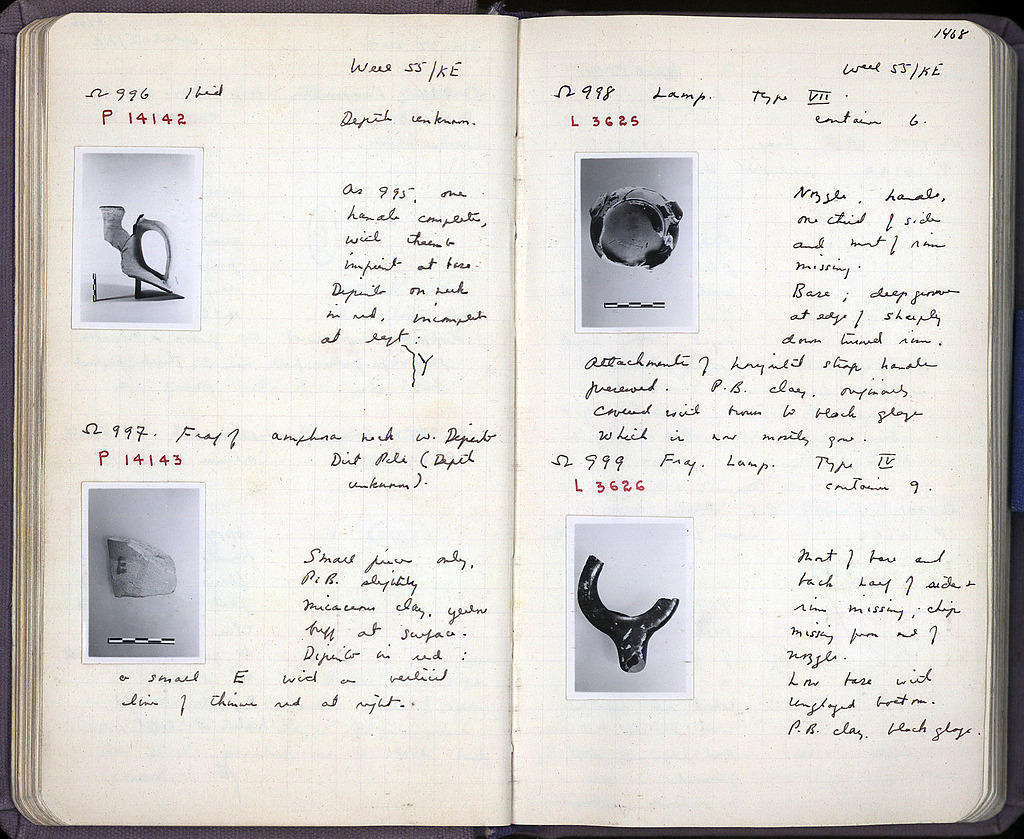 Well 55/KE
Ω 996 Ibid
P 14142
Depth unknown.
As 995, one
handle complete,
with thumb
imprint at base.
Dipinto on neck
in red, incomplete
at left:
Y
Ω 997. Frag of amphora neck w. Dipinto
P 14143
Dirt Pile (Depth
unknown).
Small piece only,
P.B. slightly
micaceous clay, yellow
buff at surface.
Dipinto in red:
a small E with a vertical
line of thinner red at right.
1468
Well 55/KE
Ω 998 Lamp. Type VII.
L 3625
container 6.
Nozzle, handle,
one third of side
and most of rim
missing.
Base; deep groove
at edge of sharply
down turned rim.
Attachments of horizontal strap handle
preserved. P.B. clay, originally
covered with brown to black glaze
which is now mostly gone.
Ω 999 Frag. Lamp. Type IV
L 3626
container 9.
Most of base and
back half of side &
rim missing; chip
missing from end of
nozzle.
Low base with
unglazed bottom.
P.B. clay, black glaze.